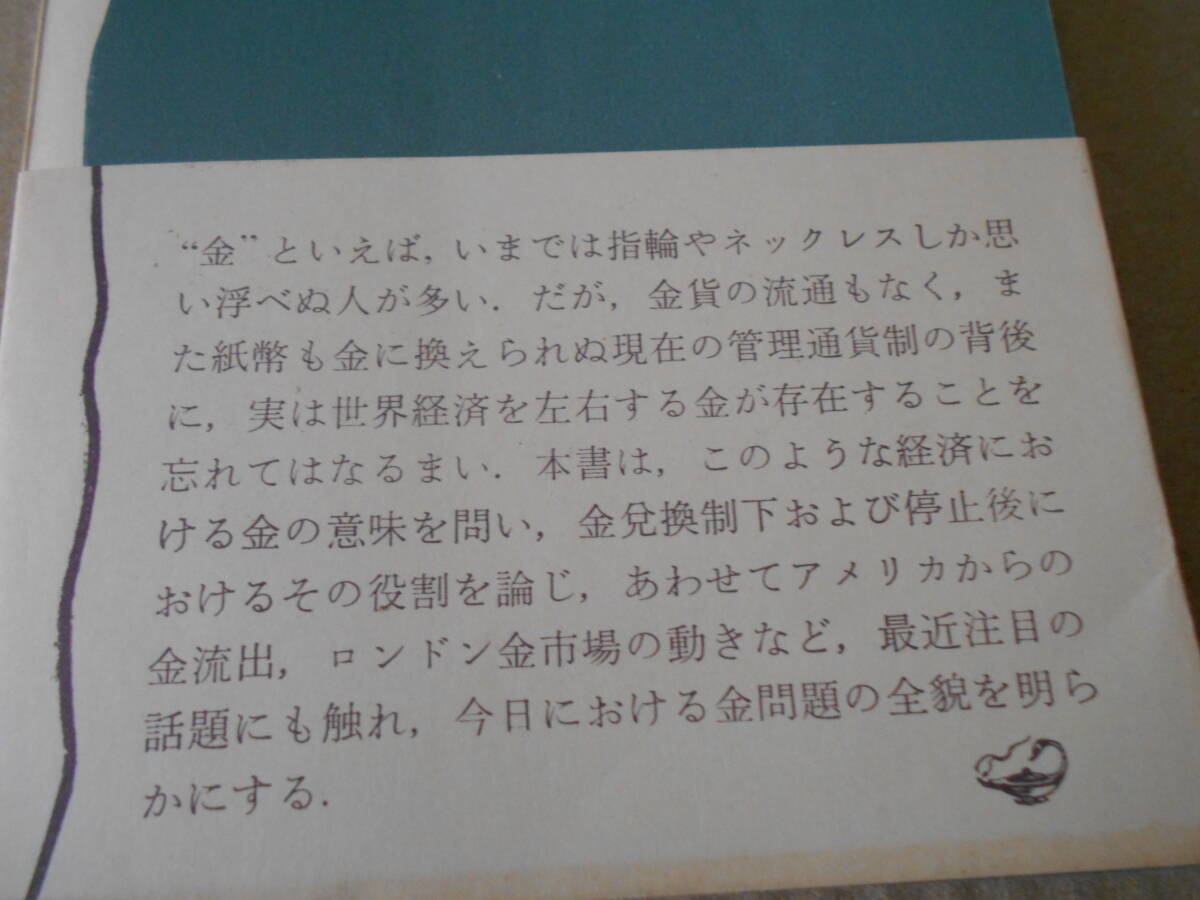 “金”といえば，いまでは指輪やネックレスしか思
い浮べぬ人が多い．だが，金貨の流通もなく，ま
た紙幣も金に換えられぬ現在の管理通貨制の背後
に，実は世界経済を左右する金が存在することを
忘れてはなるまい．本書は，このような経済にお
ける金の意味を問い，金兌換制下および停止後に
おけるその役割を論じ，あわせてアメリカからの
金流出，ロンドン金市場の動きなど，最近注目の
話題にも触れ，今日における金問題の全貌を明ら
かにする．